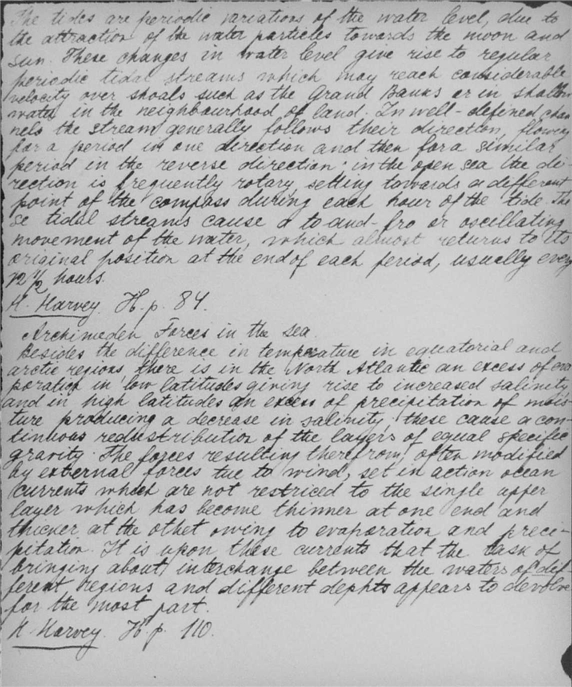 The tides are periodic variations of the water level, due to
the attraction of the water particles towards the moon and
sun. These changes in water level give rise to regular
periodic tidal streams which may reach considerable
velocity over shoals such as the Grand Banks or in shallow
water in the neighbourhood of land. In well-defined chan
nels the stream generally follows their direction, flowing
for a period in one direction and then for a similar
period in the reverse direction; in the open sea the di-
rection is frequently rotary, setting towards a different
point of the compass during each hour of the tide. The
se tidal streams cause a to and fro or oscillating
movement of the water, which almost returns to its
original position at the end of each period, usually every
12 1/2 hours.
H. Harvey. H. p. 84.
Archimeden Forces in the sea.
Besides the difference in temperature in equatorial and
arctic regions there is in the North Atlantic an excess of eva
poration in low latitudes giving rise to increased salinity
and in high latitudes an excess of precipitation of mois-
ture producing a decrease in salinity; these cause a con-
tinuous redustribution of the layers of equal specific
gravity. The forces resulting therefrom, often modified
by external forces tue to wind, set in action ocean
currents which are not restriced to the single upper
layer which has become thinner at one end and
thicner at the othet owing to evaporation and preci-
pitation. It is upon these currents that the task of
bringing about interchange between the waters of dif
ferent regions and different dephts appears to devolve
for the most part.
H. Harvey. H. p. 110.